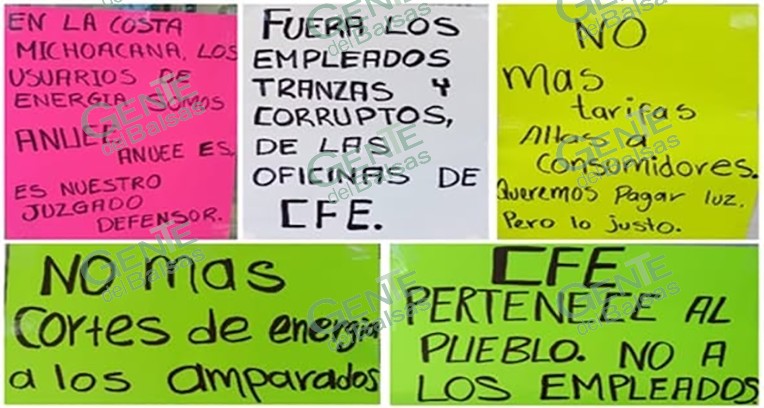 EN LA COSTA
MICHOACANA, LOS
USUARIOS DE
ENERGIA SOMOS
ANUEE
ANUEE ES,
ES NUESTRO
JUZGADO
DEFENSOR.
FUERA LOS
EMPLEADOS
TRANZAS Y
CORRUPTOS,
DE LAS
OFICINAS DE
CFE.
NO
mas
tarifas
Altas a
consumidores.
Queremos Pagar luz,
Pero lo justo.
NO mas
cortes de energia
a los amparados
CFE
PERTENECE AL
PUEBLO. NO A
LOS EMPLEADOS
GENTE
del Balsas
GENTE
del Balsas
GENTE
del Balsas
GENTE
del Balsas
GENTE
del Balsas
GENTE
del Balsas